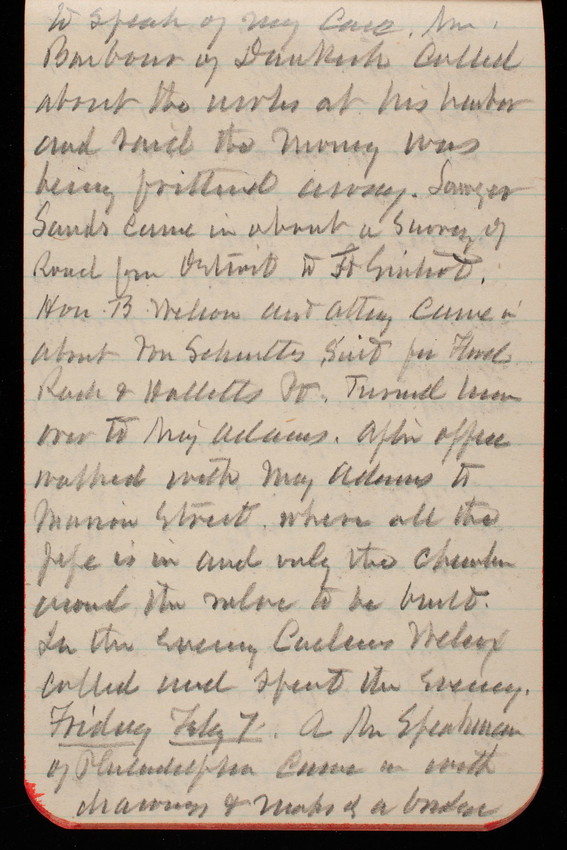 to speak of my case. Mr.
Barbour of Dunkirk called
about the works at his harbor
and said the money was
being frittered away. Lawyer
Sands came in about a survey of
Road from Detroit to Ft Gratiot.
Hon. B. Wilson and atty came in
about Mr Schultes Suit for Floods
Rock & Halletts Pt. Turned him
over to Maj Adams. After office
walked with Maj Adams to
Marion Street where all the
pipe is in and only the chamber
around the valve to be built.
In the evening Cadmus Wilcox
called and spent the evening.
Friday Feby 7. A Mr Speakman
of Philadelphia came in with
drawings & maps of a